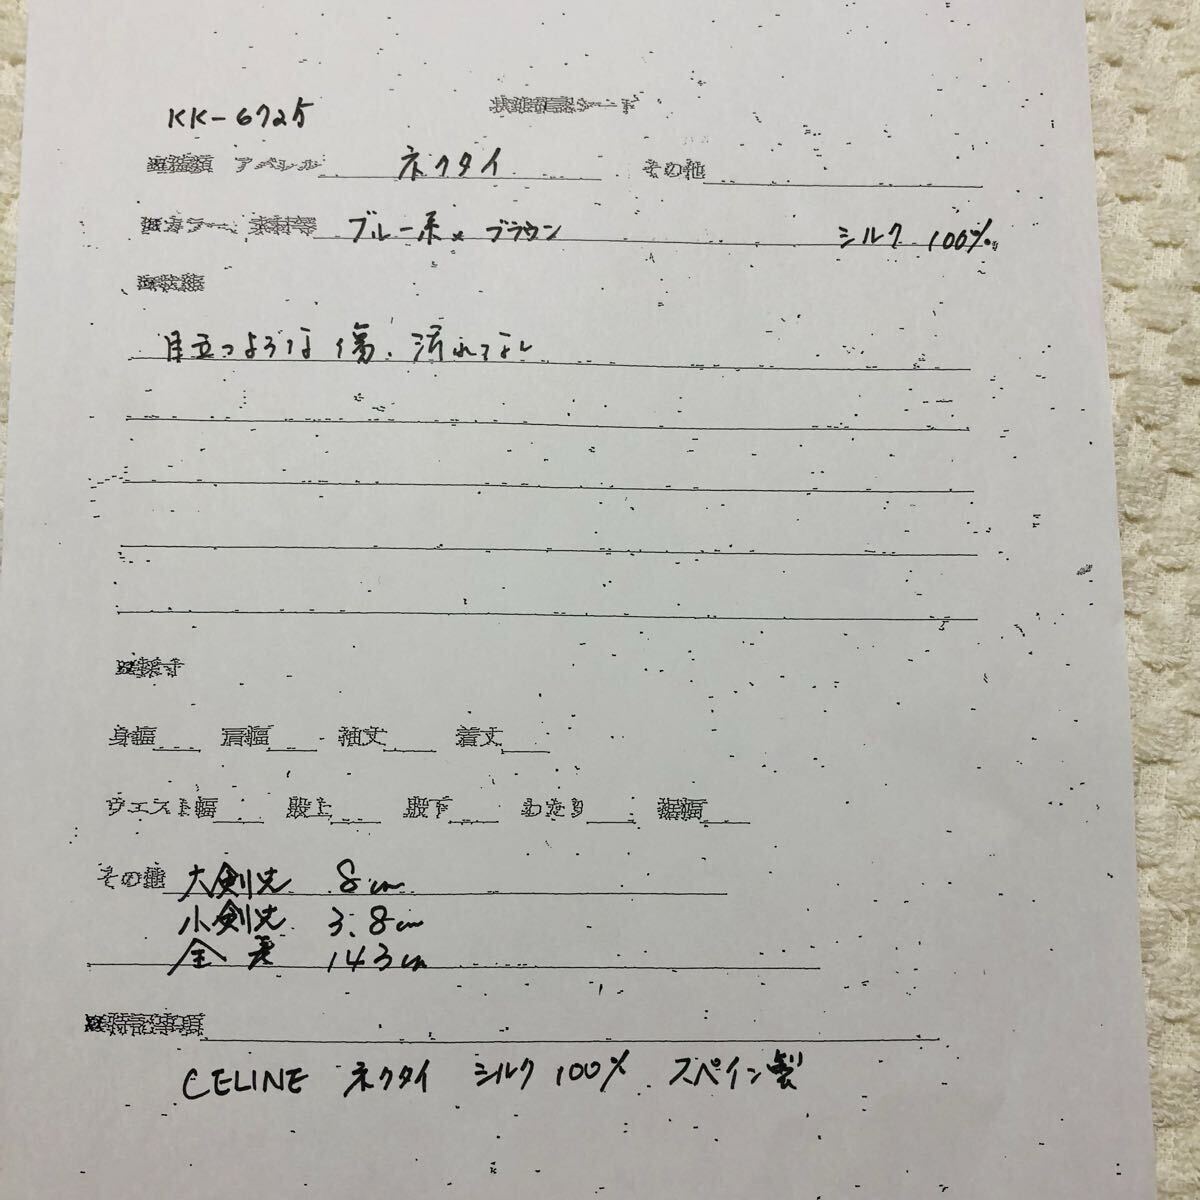 KK-6725 状態確認シート
種類 アパレル ネクタイ その他
カラー、素材等 ブルー系×ブラウン シルク 100%
状態
目立つような傷、汚れなし
採寸
身幅 肩幅 袖丈 着丈
ウエスト幅 股上 股下 わたり 裾幅
その他 大剣先 8cm
小剣先 3.8cm
全長 143cm
特記事項
CELINE ネクタイ シルク100% スペイン製